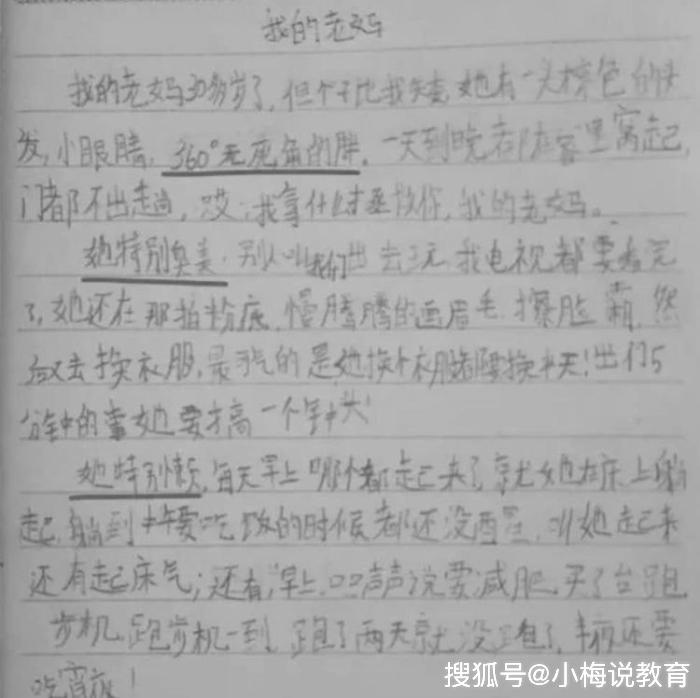 我的老妈
我的老妈30多岁了,但个子比我矮,她有一头棕色的头
发,小眼睛,360°无死角的胖。一天到晚都在客里窝起,
门都不出趟,哎,我拿什么拯救你,我的老妈。
她特别臭美,别人叫我们出去玩,我电视都要看完
了,她还在那拍粉底,慢腾腾的画眉毛,擦脸霜,然
又去换衣服,最气的是她换个衣服都要换半天!出门5
分钟的事她要搞一个钟头!
她特别懒,每天早上哪个都起来了,就她在床上躺
起,躺到中午要吃饭的时候都还没洒,叫她起来
还有起床气;还有,早上口口声声说要减肥,买了台跑
步机,跑步机一到,跑了两天就没跑了,半夜还要
吃宵夜!
搜狐号@小梅说教育